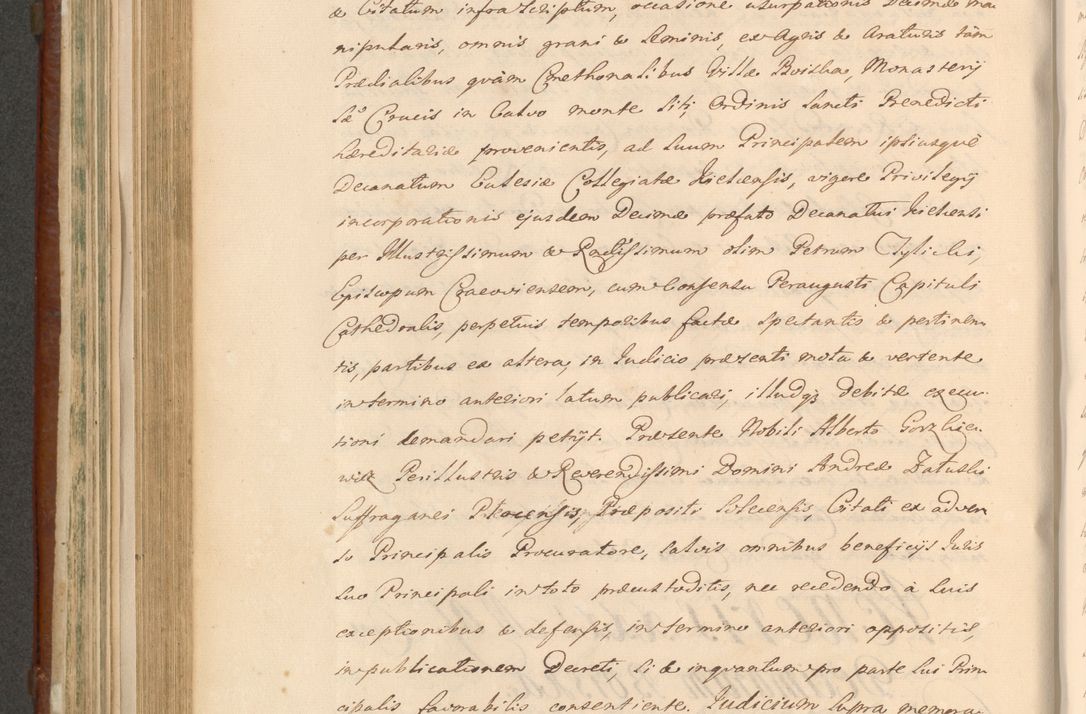 & Citatum infrascriptum, occasione usurpationis Decimæ ma-
nipularis, omnis grani & seminis, ex Agris & Araturis tàm
Prædialibus quàm Cmethonalibus Villæ Boiska, Monasterij
Sæ Crucis in Calvo monte siti, Ordinis Sancti Benedicti
hæreditariæ provenientis, ad suum Principalem ipsiusquè
Decanatum Eclesiæ Collegiatæ Kielcensis, vigore Privilegij
incorporationis ejusdem Decimæ præfato Decanatui Kielcensi
per Illustrissimum & Rndissimum olim Petrum Tylicki,
Episcopum Cracoviensem, cum Consensu Peraugusti Capituli
Cathedralis, perpetuis temporibus factæ spectantis & pertinen-
tis, partibus ex altera, in Iudicio præsenti mota & vertente
in termino anteriori latum publicari, illudq3 debitæ execu-
tioni demandari petijt. Præsente Nobili Alberto Gorzkie-
wicz Perillustris & Reverendissimi Domini Andreæ Załuski
Suffraganei Plocensis, Præpositi Solecensis, Citati ex adver-
so Principalis Procuratore, salvis omnibus beneficijs Iuris
suo Principali in toto præcustoditis, nec recedendo à suis
exceptionibus & defensis, in termino anteriori oppositis,
in publicationem Decreti, si & inquantum pro parte sui Prin-
cipalis favorabilis consentiente. Iudicium supra memora-